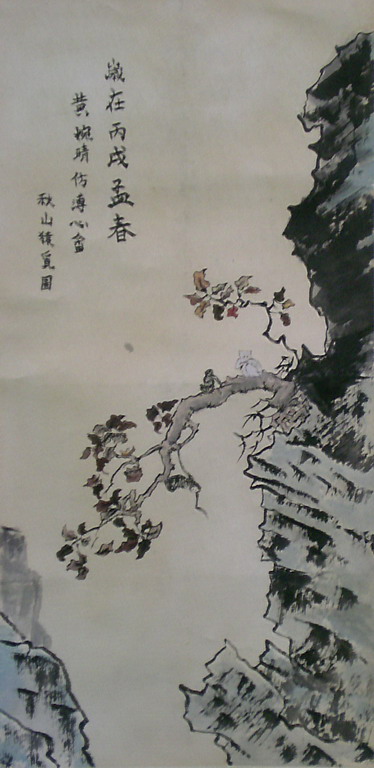 歲在丙戌孟春
黄婉晴仿溥心畬
秋山猿覓圖